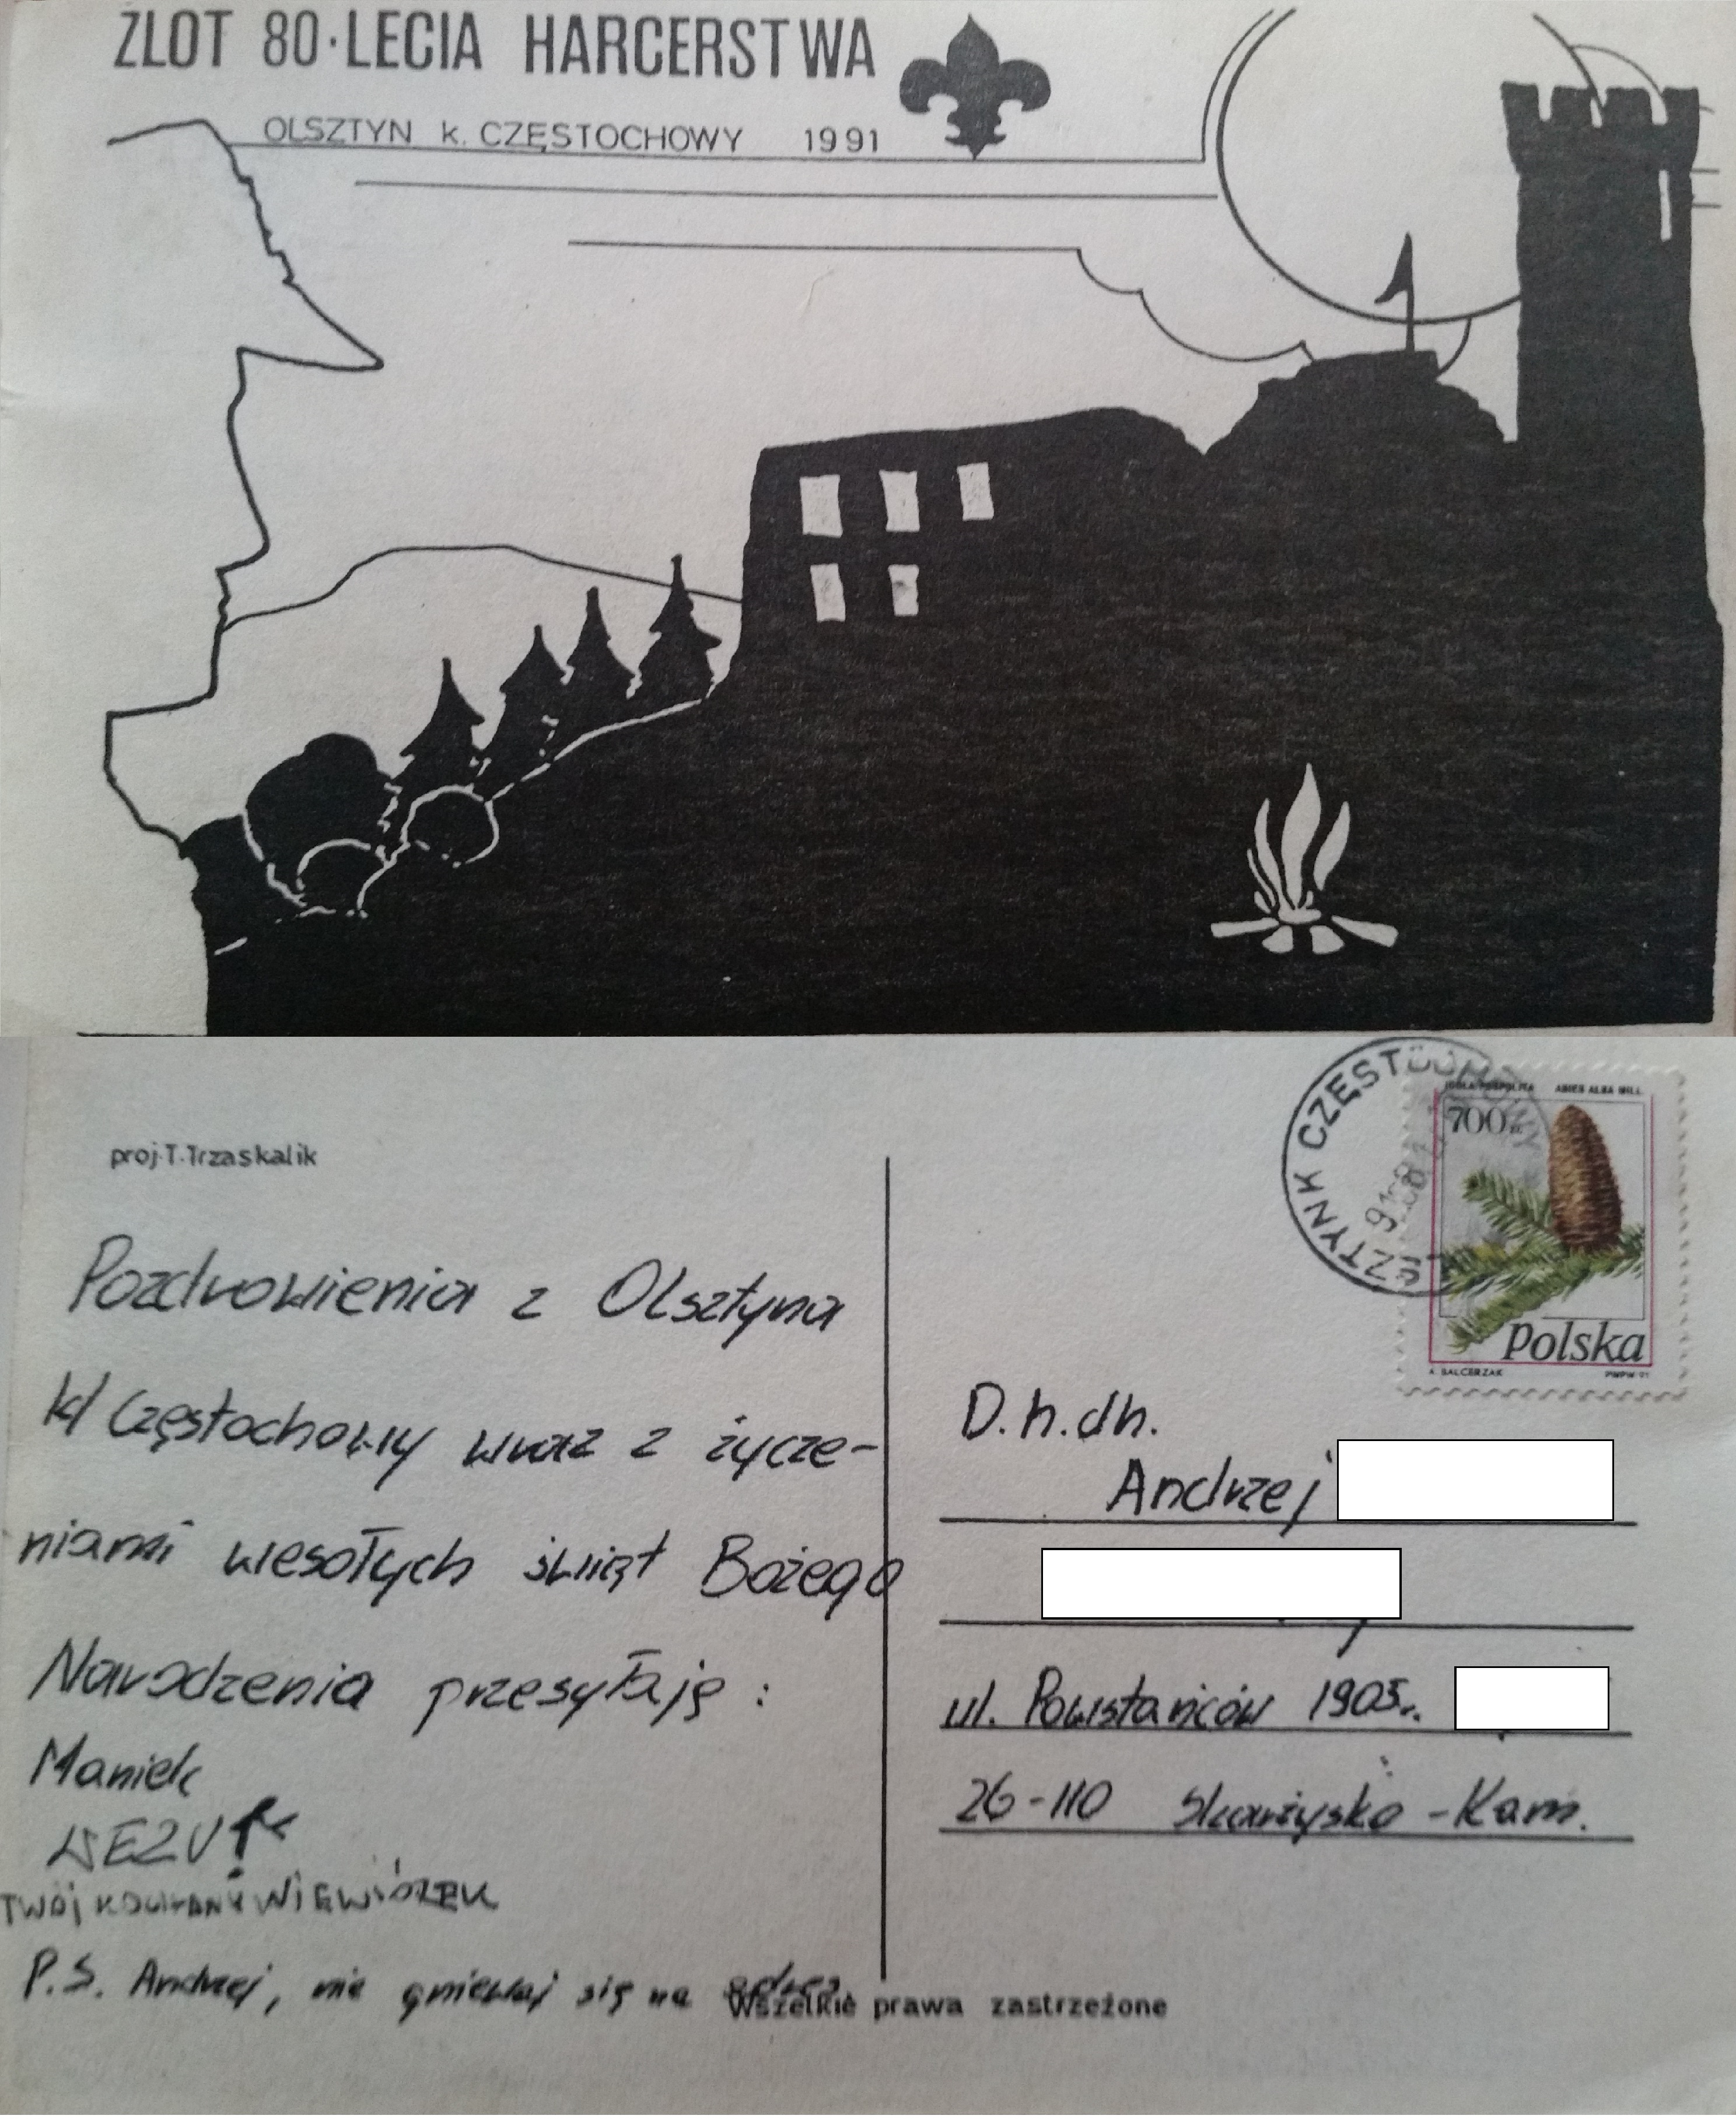 ZLOT 80-LECIA HARCERSTWA
OLSZTYN k. CZĘSTOCHOWY 1991
proj. T. Trzaskalik
CZĘSTOCHOWY
IGLA POSPOLITA ABIES ALBA MILL.
700 zł
Polska
A. BALCERZAK PWPW 91
Pozdrowienia z Olsztyna
k/Częstochowy wraz z życze-
niami wesołych świąt Bożego
Narodzenia przesyłają:
Maniek
TWÓJ KOCHANY WIEWIÓREK
P.S. Andrzej, nie gniewaj się na
Wszelkie prawa zastrzeżone
D.h.dh.
Andrzej
ul. Powstańców 1905r.
26-110 Skarżysko-Kam.